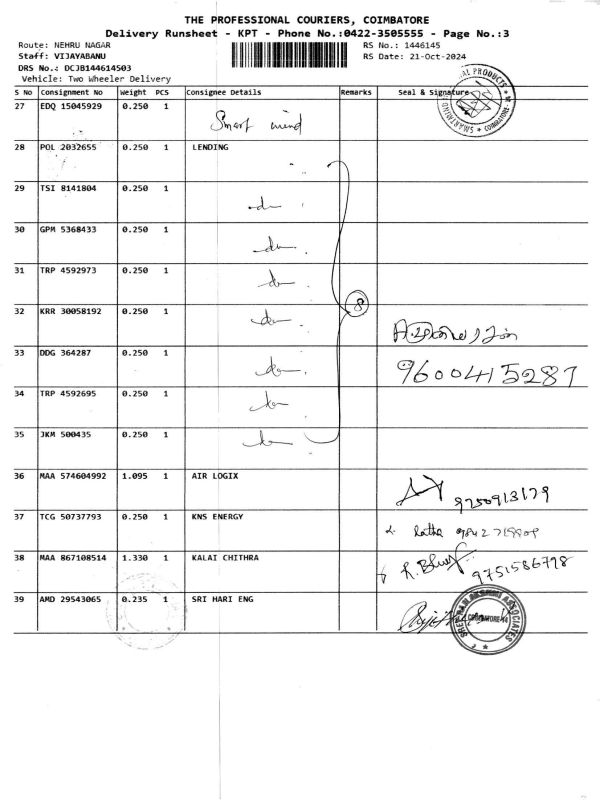 THE PROFESSIONAL COURIERS, COIMBATORE
Delivery Runsheet - KPT - Phone No.:0422-3505555 - Page No.:3
Route: NEHRU NAGAR
RS No.: 1446145
Staff: VIJAYABANU
RS Date: 21-Oct-2024
DRS No.: DCJB144614503
Vehicle: Two Wheeler Delivery
S No Consignment No Weight PCS Consignee Details Remarks Seal & Signature
27 EDQ 15045929 0.250 1
Smart mind
28 POL 2032655 0.250 1 LENDING
29 TSI 8141804 0.250 1
do
30 GPM 5368433 0.250 1
do
31 TRP 4592973 0.250 1
do
32 KRR 30058192 0.250 1 do 8
33 DDG 364287 0.250 1 do 9600415287
34 TRP 4592695 0.250 1
do
35 JKM 500435 0.250 1 do
36 MAA 574604992 1.095 1 AIR LOGIX
9250913179
37 TCG 50737793 0.250 1 KNS ENERGY
Latha
38 MAA 867108514 1.330 1 KALAI CHITHRA
9751586798
39 AMD 29543065 0.235 1 SRI HARI ENG